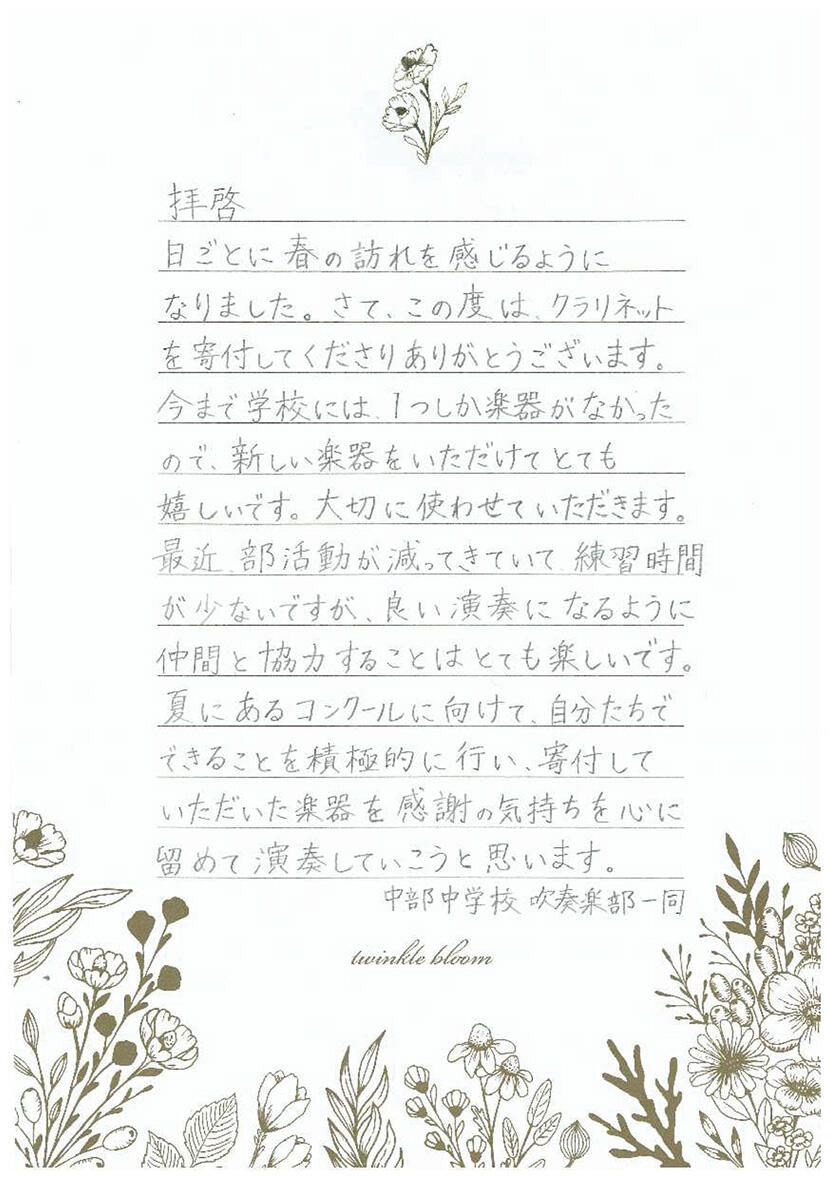 拝啓
日ごとに春の訪れを感じるように
なりました。さて、この度は、クラリネット
を寄付してくださりありがとうございます。
今まで学校には、1つしか楽器がなかった
ので、新しい楽器をいただけてとても
嬉しいです。大切に使わせていただきます。
最近、部活動が減ってきていて、練習時間
が少ないですが、良い演奏になるように
仲間と協力することはとても楽しいです。
夏にあるコンクールに向けて、自分たちで
できることを積極的に行い、寄付して
いただいた楽器を感謝の気持ちを心に
留めて演奏していこうと思います。
中部中学校 吹奏楽部一同
twinkle bloom